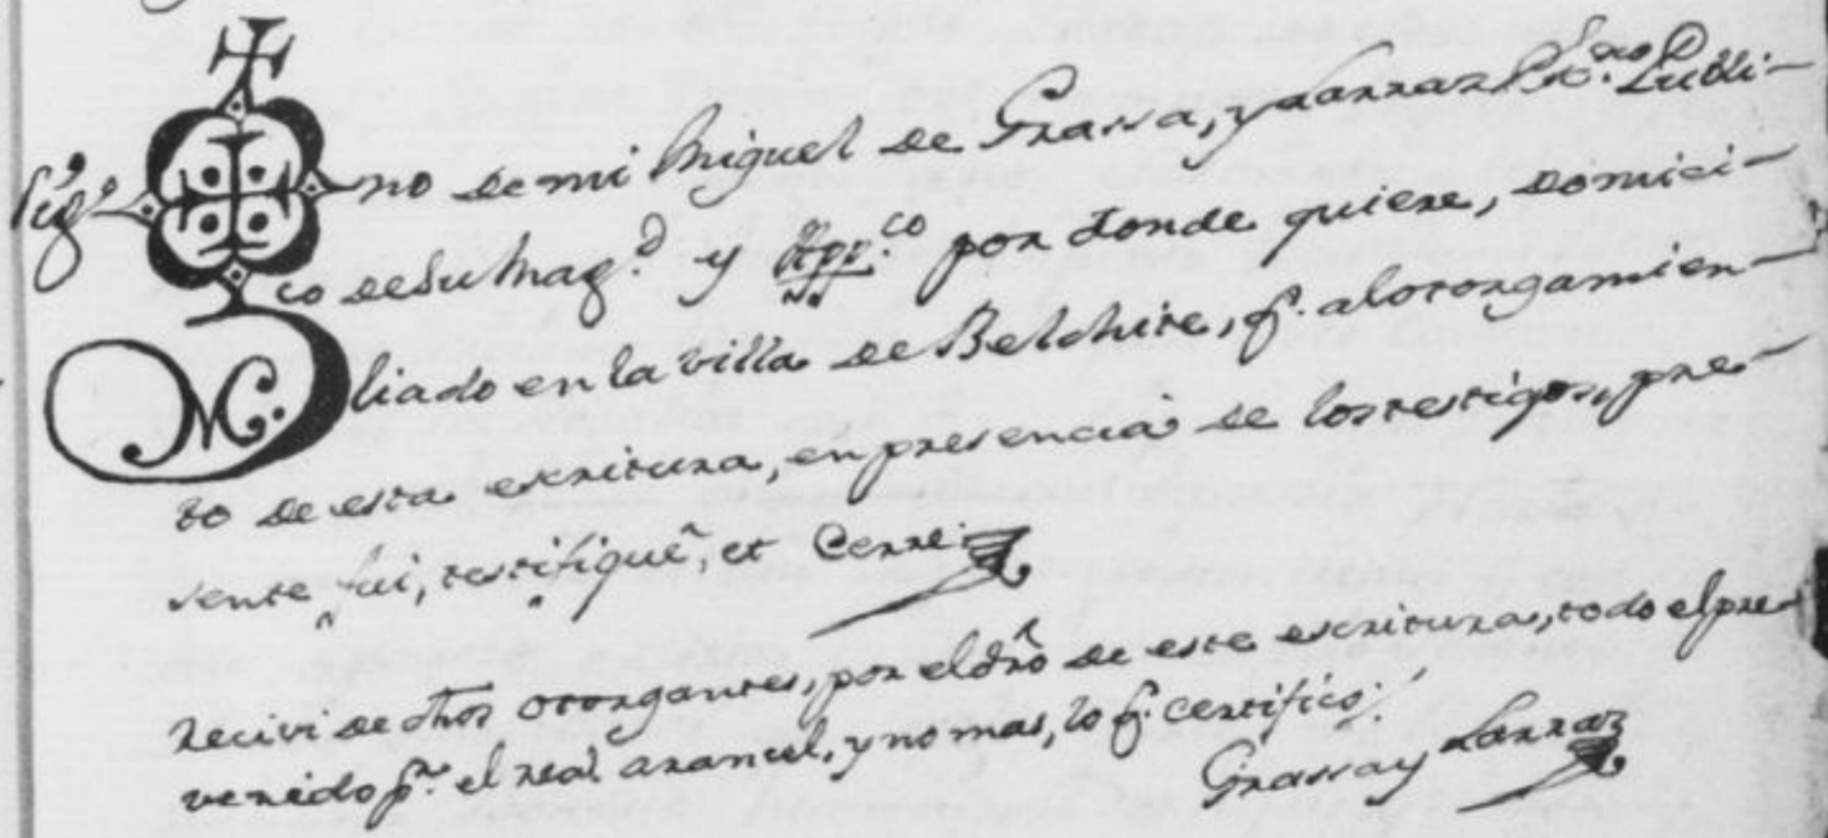 Sig.º no de mi Miguel de Grassa, y Larraz Ss.no Publi-
co de su Mag.d y App.co por donde quiere, domici-
M.
liado en la villa de Belchite, q.e al otorgamien-
to de esta escritura, en presencia de los testigos, pre-
sente fui, testifiqué, et Cerré.
Recivi de dhos otorgantes, por el dró de este escrituras, todo el pre-
venido p.r el real arancel, y no mas, lo q.e certifico.
Grassa y Larraz